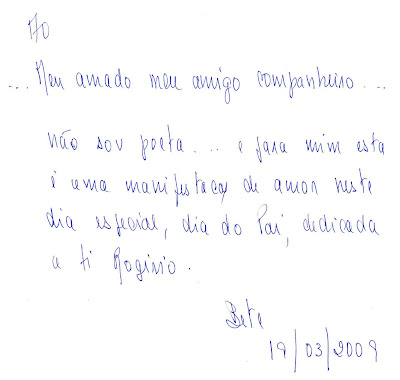 Ao
... Meu amado meu amigo companheiro ...
não sou poeta .... e para mim esta
é uma manifestação de amor neste
dia especial, dia do Pai, dedicada
a ti Rogério.
Bete
19/03/2009